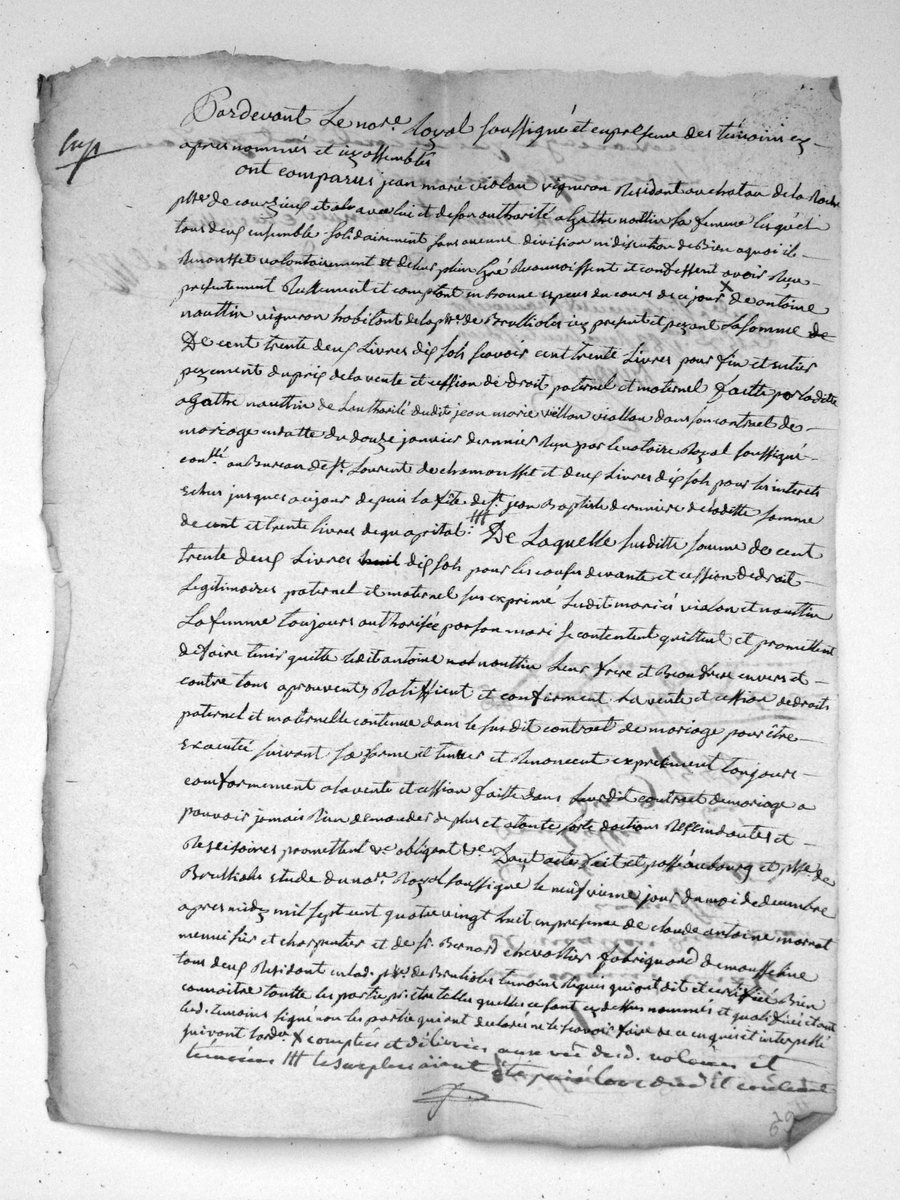 Pardevant Le nore. Royal soussigné et en presense des temoins cy
exp
apres nommés et icy assemblés
ont comparus jean marie violon vigneron Residant au chatau de la Roche
psse de courzieu et avec lui et de son authorité agathe nauttin sa femme lesquels
tous deux ensemble solidairement sans aucune division ni discution de Bien a quoi ils
Renonsset volontairement et de leur plein Gré Reconnoissent et confessent avoir Reçu
presentement Reellement et comptant en bonne espece du cours de ce jour x de antoine
nauttin vigneron habitant de la psse. de Brullioles icy present et pezant La somme de
De cent trente deux Livres dix sols sçavoir cent trente Livres pour fin et entier
pezement du prix de la vente et cession de droit paternel et maternel faitte par laditte
agathe nauttin de L'authorité dudit jean marie viollon viallon dans son contract de
mariage en datte du douze janvier dernnier Reçu par le notaire Royal soussigné
conllé au Bureau de St. Laurent de chamousset et deux Livres dix sols pour les interets
echus jusques a ce jour depuis la fête de St. jean Baptiste dernniere de laditte somme
de cent et trente livres de quapital ### De Laquelle susditte somme de cent
trente deux Livres huit dix sols pour les causes devante et cession de droit
Legitimaires paternel et maternel sus exprimé Ledit mariés violon et nauttin
La femme toujours authorisée par son mari se contentent quittent et promettent
de faire tenir quitte ledit antoine nauttin Leur frere et Beaufrere envers et
contre tous aprouvents Ratiffient et confirment La vente et cession de droits
paternel et maternelle contenue dans le susdit contract de mariage pour être
executé suivant sa forme et teneur et Renoncent expressement toujours
comformement a la vente et cession faitte dans susdit contract de mariage a
pouvoir jamais Rien demander de plus et a toute sorte d'actions Rescindantes et
Rescisoires promettent &c obligent &c Dont acte fait et passé au bourg et psse. de
Brullioles etude du nore. Royal soussigné le neufvieme jour du moi de decembre
apres midy mil sept cent quatre vingt huit en presense de claude antoine mornat
menuisier et charpentier et de sr. Bernard chevallier fabriquand de mousseline
tous deux Residant en lad. psse. de Brullioles temoins Requis qui ont dit et certiffiée Bien
connoitre toutte les partie pr. être telles quelles ce sont cy dessus nommés et qualifiés et ont
lesd. temoins signé non les partie qui ont declarés ne le sçavoir faire de ce enquis et interpellé
suivant l'ordce. x comptées et délivrées aux vüe desd. notaires et
temoins ### le surplus aient été